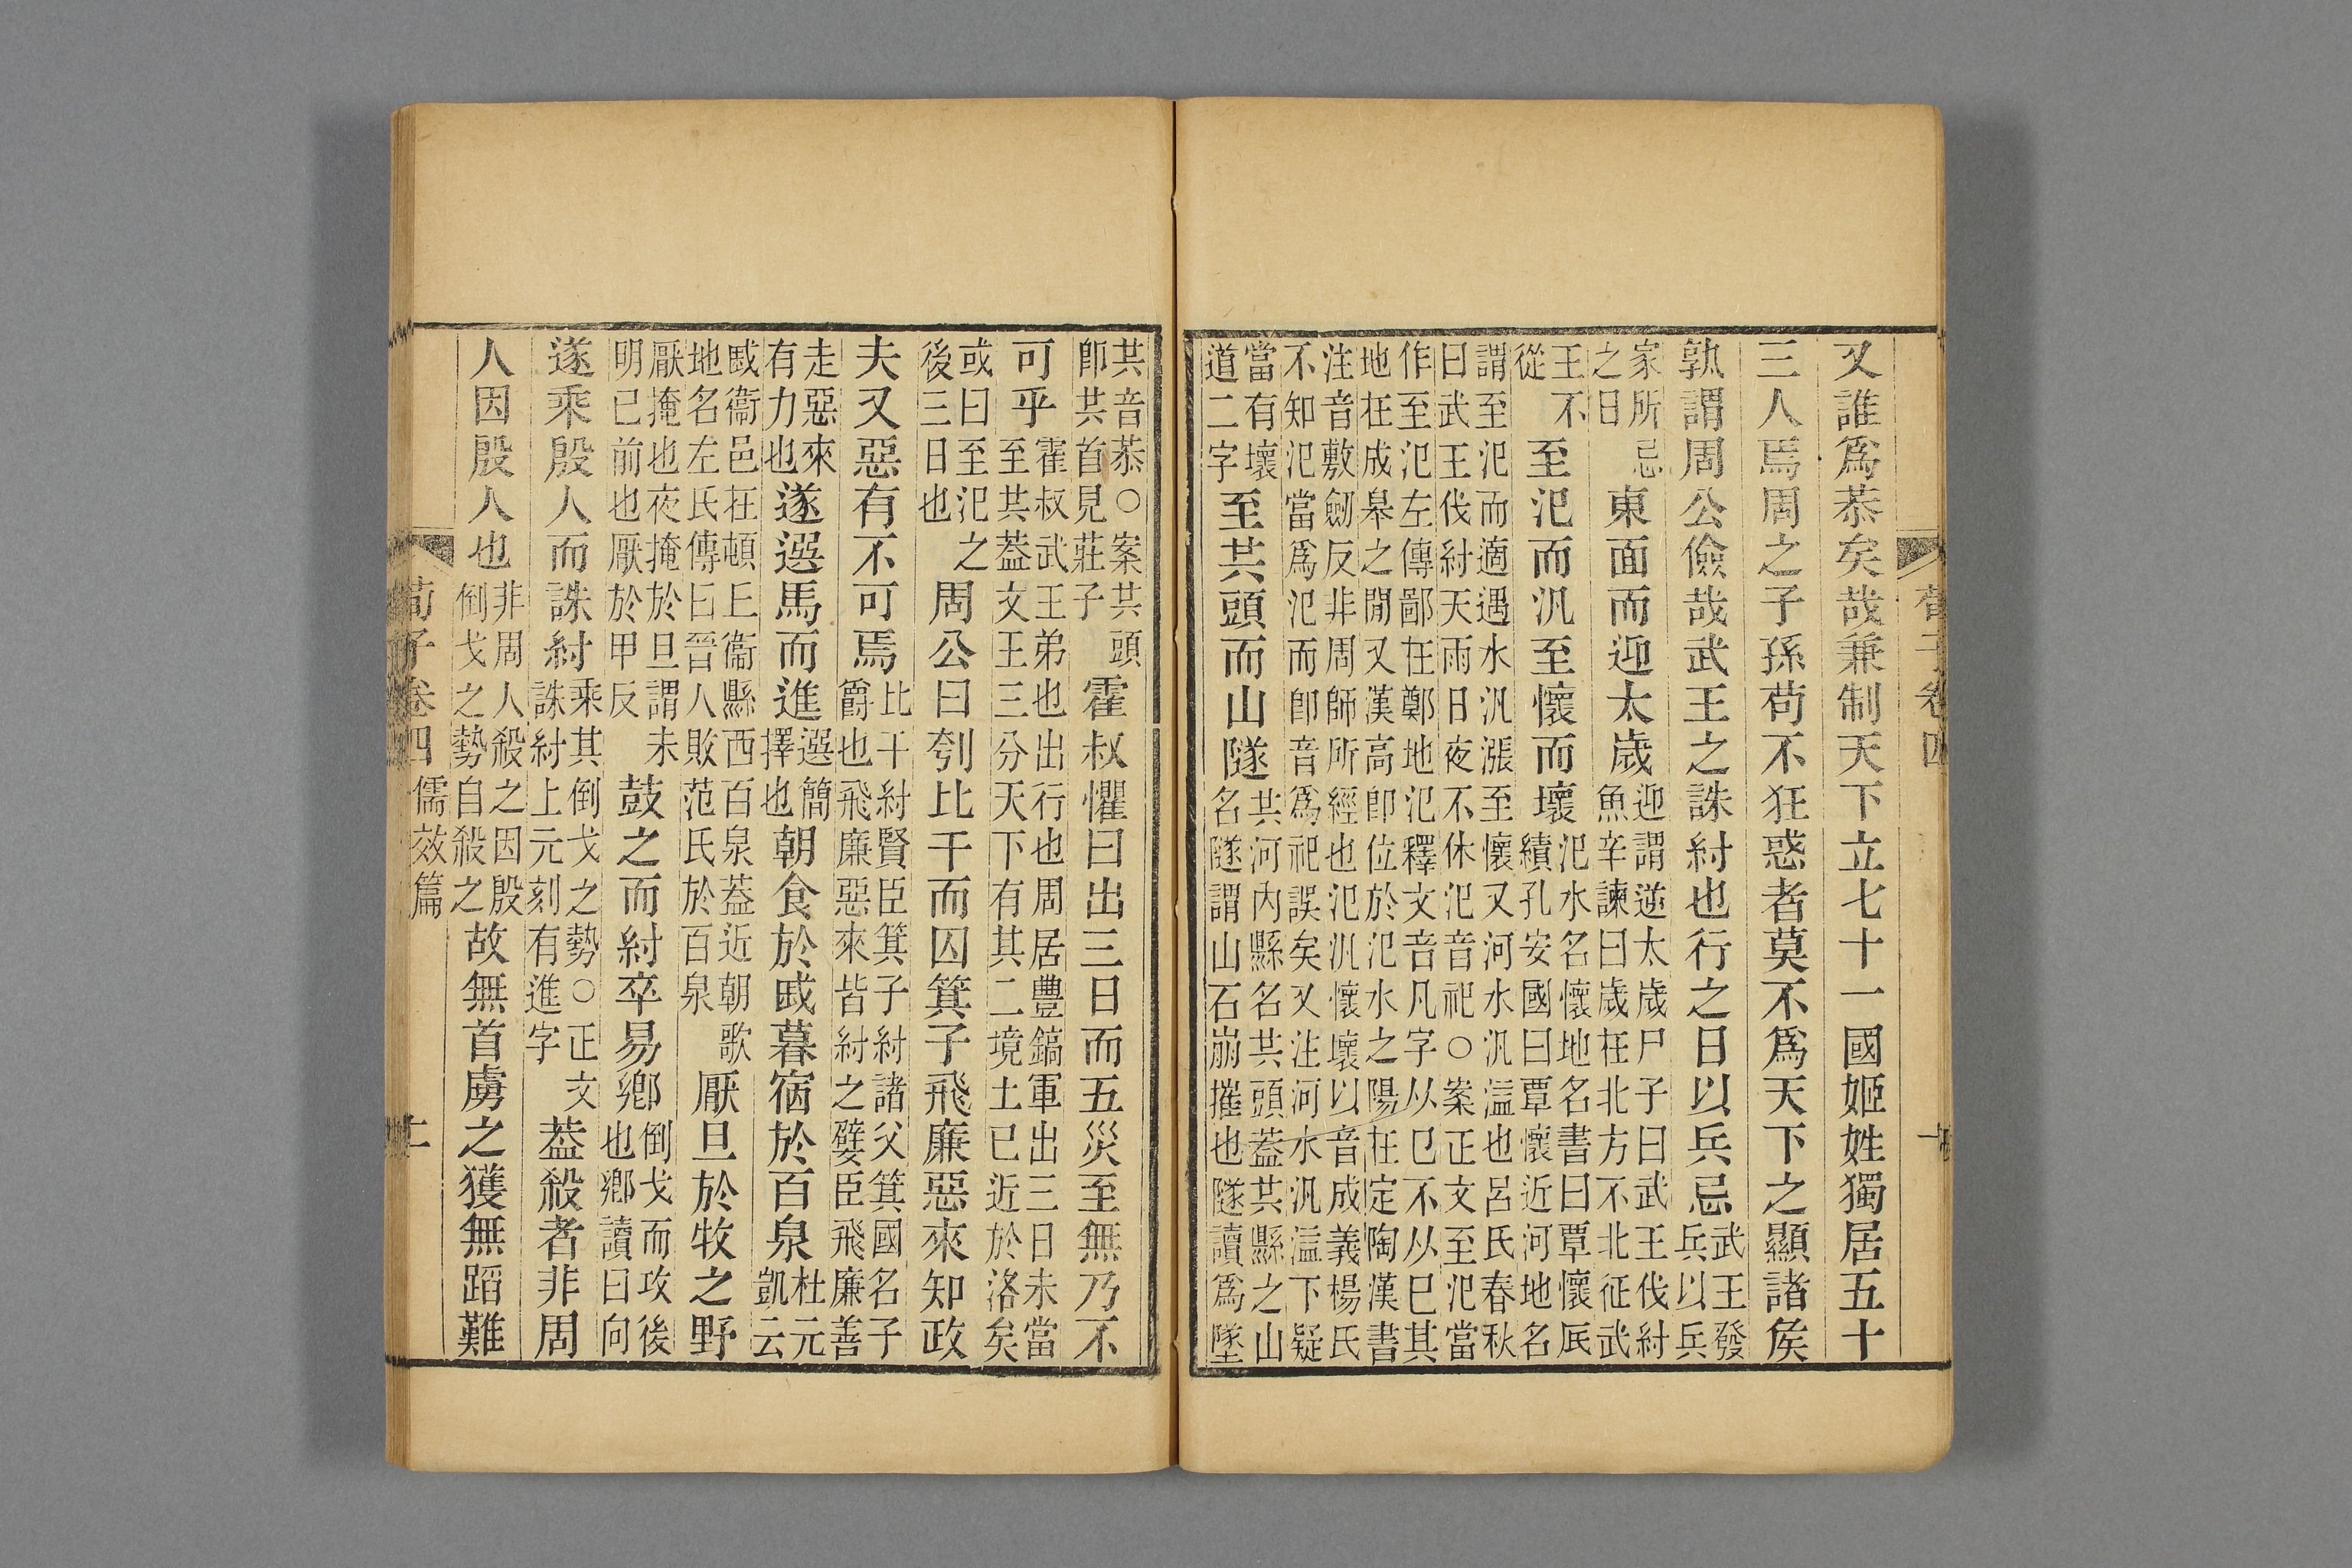 又誰爲恭矣哉兼制天下立七十一國姬姓獨居五十
三人焉周之子孫苟不狂惑者莫不爲天下之顯諸矦
孰謂周公儉哉武王之誅紂也行之日以兵忌武王發兵以兵
家所忌之日東面而迎太歲迎謂逆太歲尸子曰武王伐紂魚辛諫曰歲在北方不北征武
王不從至汜而汎至懷而壞汜水名懷地名書曰覃懷厎績孔安國曰覃懷近河地名
謂至汜而適遇水汎漲至懷又河水汎溢也呂氏春秋曰武王伐紂天雨日夜不休汜音祀○案正文至汜當
作至氾左傳鄙在鄭地氾釋文音凡字从㔾不从巳其地在成皋之閒又漢高卽位於氾水之陽在定陶漢書
注音敷劒反非周師所經也氾汎懷壞以音成義楊氏不知汜當爲氾而卽音爲祀誤矣又注河水汎溢下疑
當有壞道二字至共頭而山隧共河內縣名共頭蓋共縣之山名隧謂山石崩摧也隧讀爲墜
共音恭○案共頭卽共首見莊子霍叔懼曰出三日而五災至無乃不
可乎霍叔武王弟也出行也周居豐鎬軍出三日未當至共蓋文王三分天下有其二境土已近於洛矣
或曰至汜之後三日也周公曰刳比干而囚箕子飛廉惡來知政
夫又惡有不可焉比干紂賢臣箕子紂諸父箕國名子爵也飛廉惡來皆紂之嬖臣飛廉善
走惡來有力也遂選馬而進選簡擇也朝食於戚暮宿於百泉杜元凱云
戚衞邑在頓上衞縣西百泉蓋近朝歌地名左氏傳曰晉人敗范氏於百泉厭旦於牧之野
厭掩也夜掩於旦謂未明已前也厭於甲反鼓之而紂卒易鄉倒戈而攻後也鄉讀曰向
遂乘殷人而誅紂乘其倒戈之勢○正文誅紂上元刻有進字蓋殺者非周
人因殷人也非周人殺之因殷倒戈之勢自殺之故無首虜之獲無蹈難
荀子卷四 儒效篇